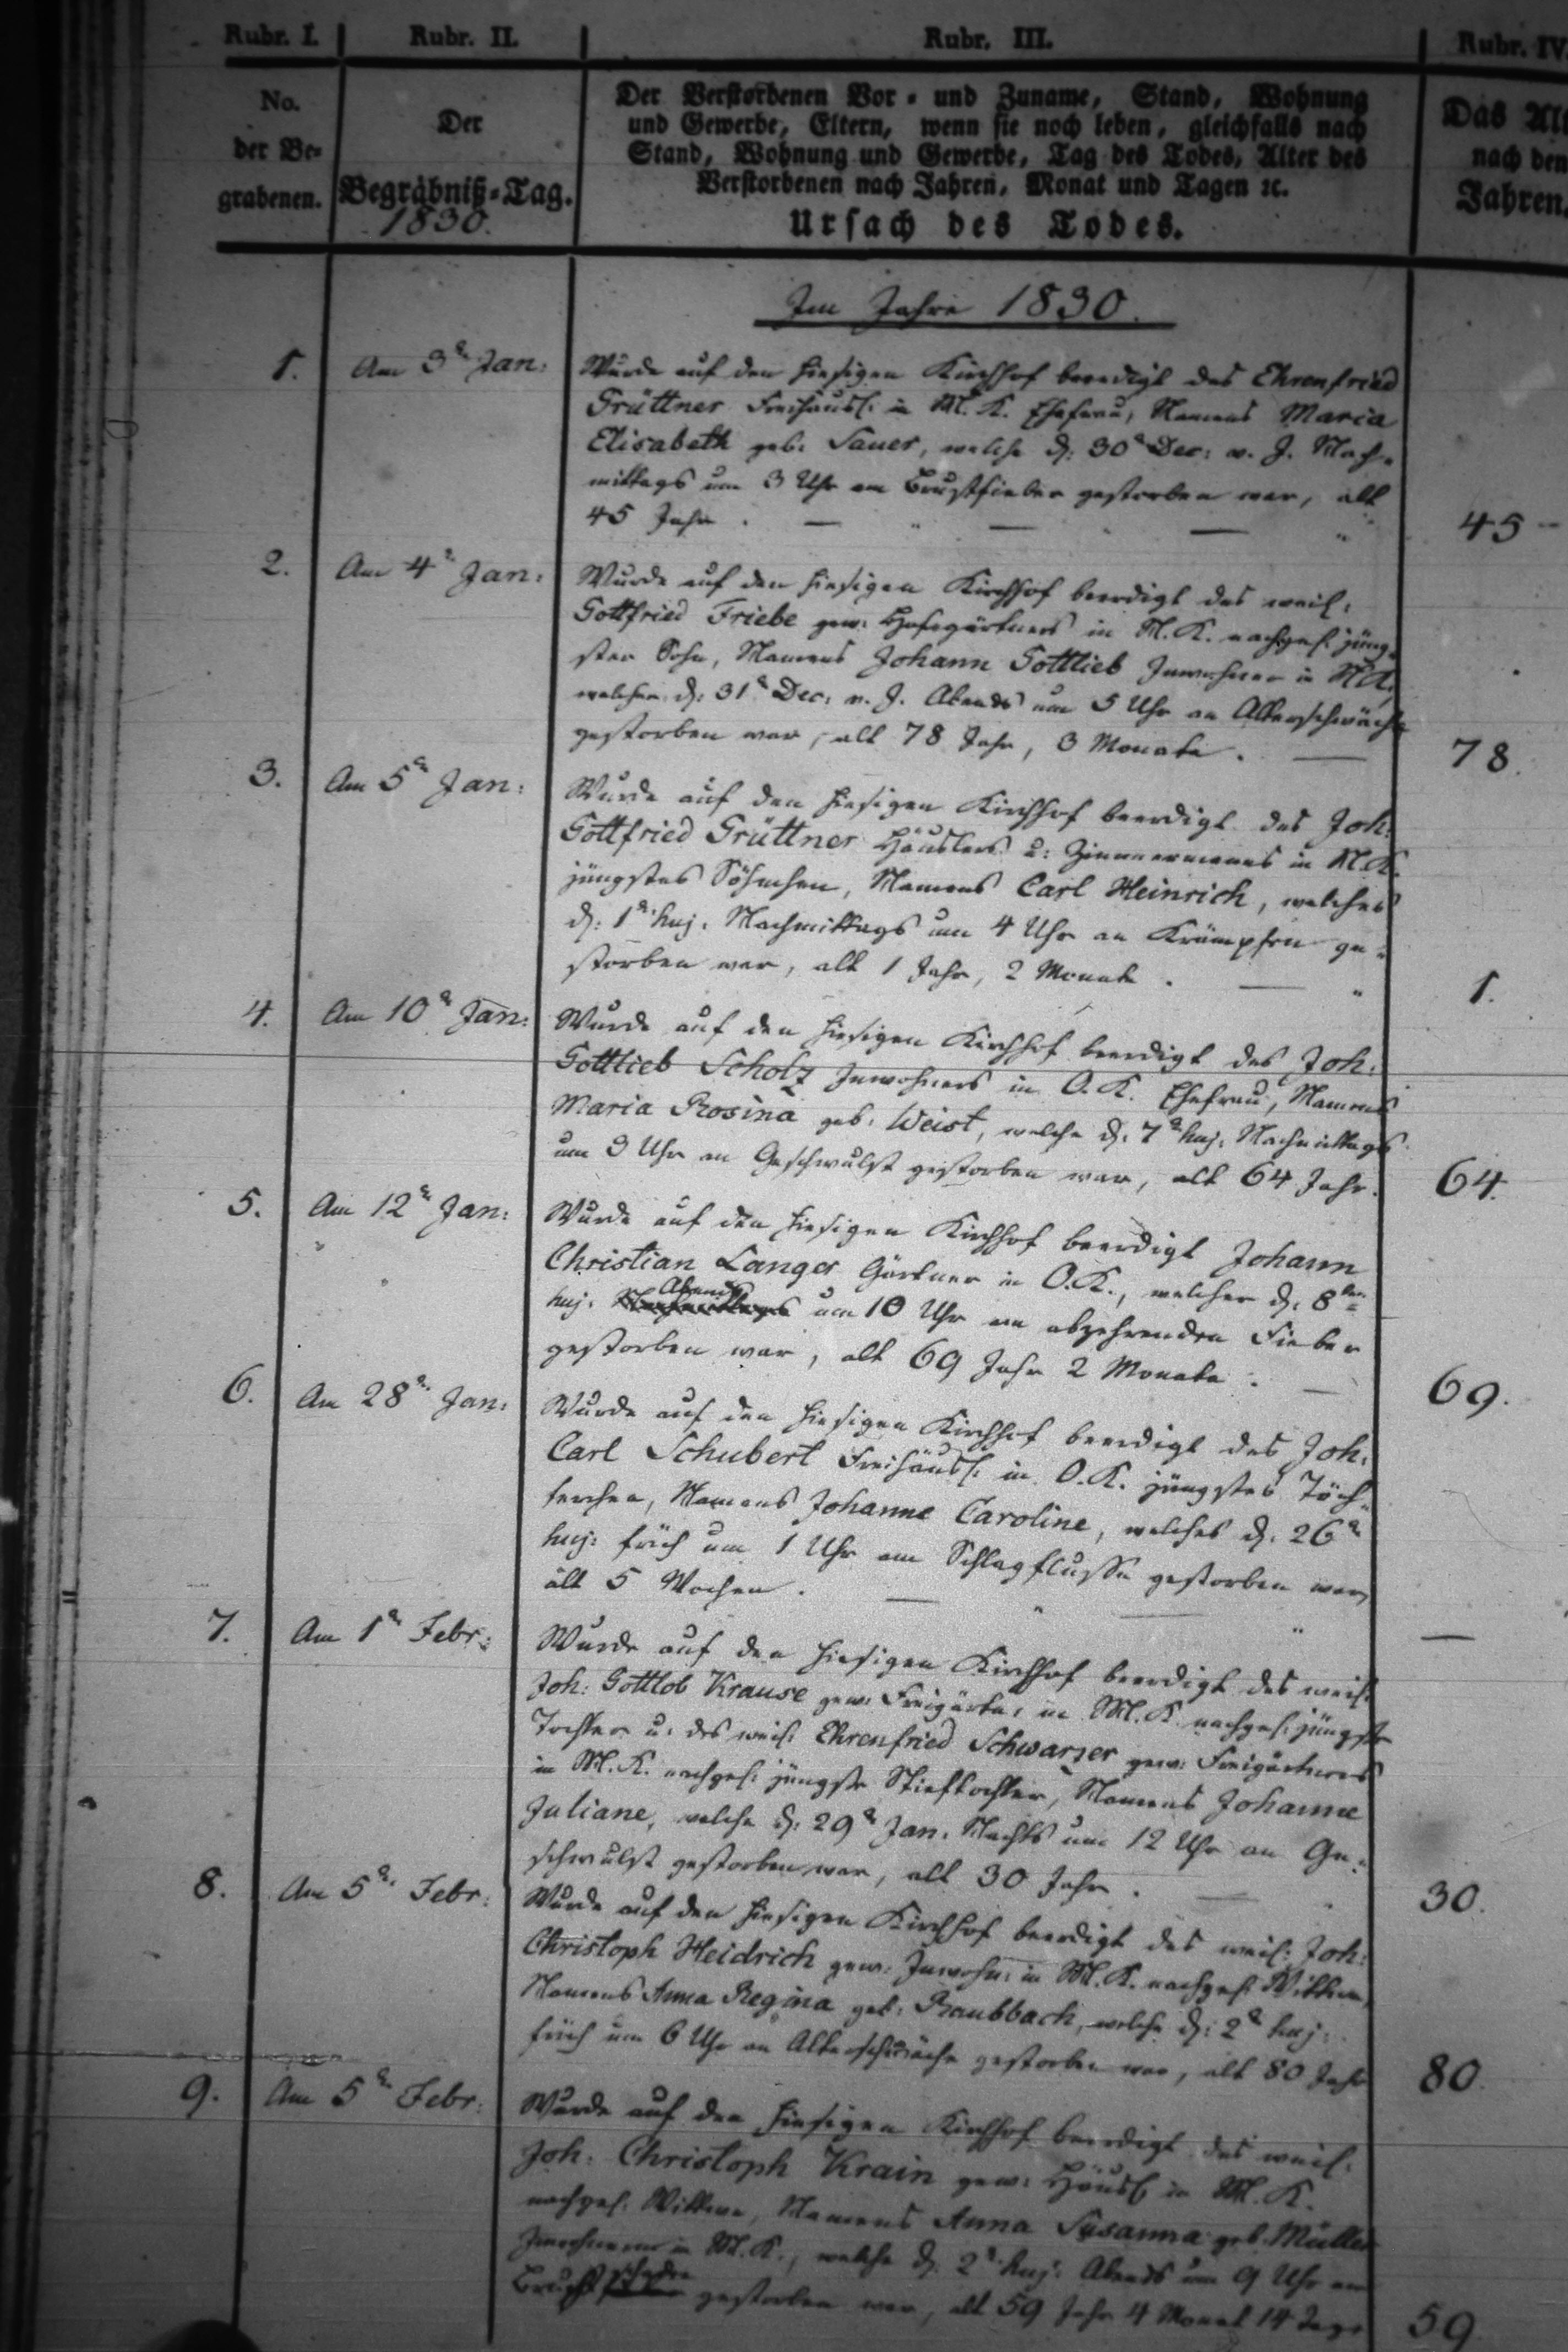 Rubr. I. Rubr. II. Rubr. III. Rubr. IV.
No.
der Be=
grabenen.
Der
Begräbniß=Tag.
1830.
Der Verstorbenen Vor= und Zuname, Stand, Wohnung
und Gewerbe, Eltern, wenn sie noch leben, gleichfalls nach
Stand, Wohnung und Gewerbe, Tag des Todes, Alter des
Verstorbenen nach Jahren, Monat und Tagen ꝛc.
Ursach des Todes.
Das Alt
nach den
Jahren.
Im Jahre 1830.
1. Am 3n Jan: Wurde auf den hiesigen Kirchhof beerdigt des Ehrenfried
Grüttner Freihäusl: in M. K. Ehefrau, Namens Maria
Elisabeth geb: Sauer, welche d: 30n Dec: v. J. Nach=
mittags um 3 Uhr am Brustfieber gestorben war, alt
45 Jahr. 45
2. Am 4n Jan: Wurde auf den hiesigen Kirchhof beerdigt des weil:
Gottfried Friebe gew: Hofegärtners in M. K. nachgel: jüng=
ster Sohn, Namens Johann Gottlieb Inwohner in M. K.
welcher d: 31n Dec: v. J. Abends um 5 Uhr an Altersschwäche
gestorben war, alt 78 Jahr, 3 Monate. 78.
3. Am 5n Jan: Wurde auf den hiesigen Kirchhof beerdigt des Joh:
Gottfried Grüttner Häuslers u: Zimmermanns in M. K.
jüngstes Söhnchen, Namens Carl Heinrich, welches
d: 1n huj. Nachmittags um 4 Uhr an Krämpfen ge=
storben war, alt 1 Jahr, 2 Monate. 1.
4. Am 10n Jan: Wurde auf den hiesigen Kirchhof beerdigt des Joh:
Gottlieb Scholz Inwohners in O. K. Ehefrau, Namens
Maria Rosina geb: Weist, welche d: 7n huj: Nachmittags
um 3 Uhr an Geschwulst gestorben war, alt 64 Jahr. 64.
5. Am 12n Jan: Wurde auf den hiesigen Kirchhof beerdigt Johann
Christian Langer Gärtner in O. K., welcher d: 8ten
huj. Nachmittags Abends um 10 Uhr am abzehrenden Fieber
gestorben war, alt 69 Jahr 2 Monate. 69.
6. Am 28n Jan: Wurde auf den hiesigen Kirchhof beerdigt des Joh:
Carl Schubert Freihäusl: in O. K. jüngstes Töch=
terchen, Namens Johanne Caroline, welches d: 26n
huj: früh um 1 Uhr am Schlagflusse gestorben war,
alt 5 Wochen. —
7. Am 1n Febr: Wurde auf den hiesigen Kirchhof beerdigt des weil:
Joh: Gottlob Krause gew: Freigärtn: in M. K. nachgel: jüngste
Tochter u: des weil: Ehrenfried Schwarzer gew: Freigärtners
in M. K. nachgel: jüngste Stieftochter, Namens Johanne
Juliane, welche d: 29n Jan: Nachts um 12 Uhr an Ge=
schwulst gestorben war, alt 30 Jahr. 30.
8. Am 5n Febr: Wurde auf den hiesigen Kirchhof beerdigt des weil: Joh:
Christoph Heidrich gew: Inwohn: in M. K. nachgel: Wittwe,
Namens Anna Regina geb: Raubbach, welche d: 2n huj:
früh um 6 Uhr an Altersschwäche gestorben war, alt 80 Jahr 80.
9. Am 5n Febr: Wurde auf den hiesigen Kirchhof beerdigt des weil:
Joh: Christoph Krain gew: Häusl: in M. K.
nachgel: Wittwe, Namens Anna Susanna geb. Müller
Inwohnerin in M. K., welche d: 2n huj: Abends um 9 Uhr am
Bruchschaden gestorben war, alt 59 Jahr 4 Monat 14 Tage 59